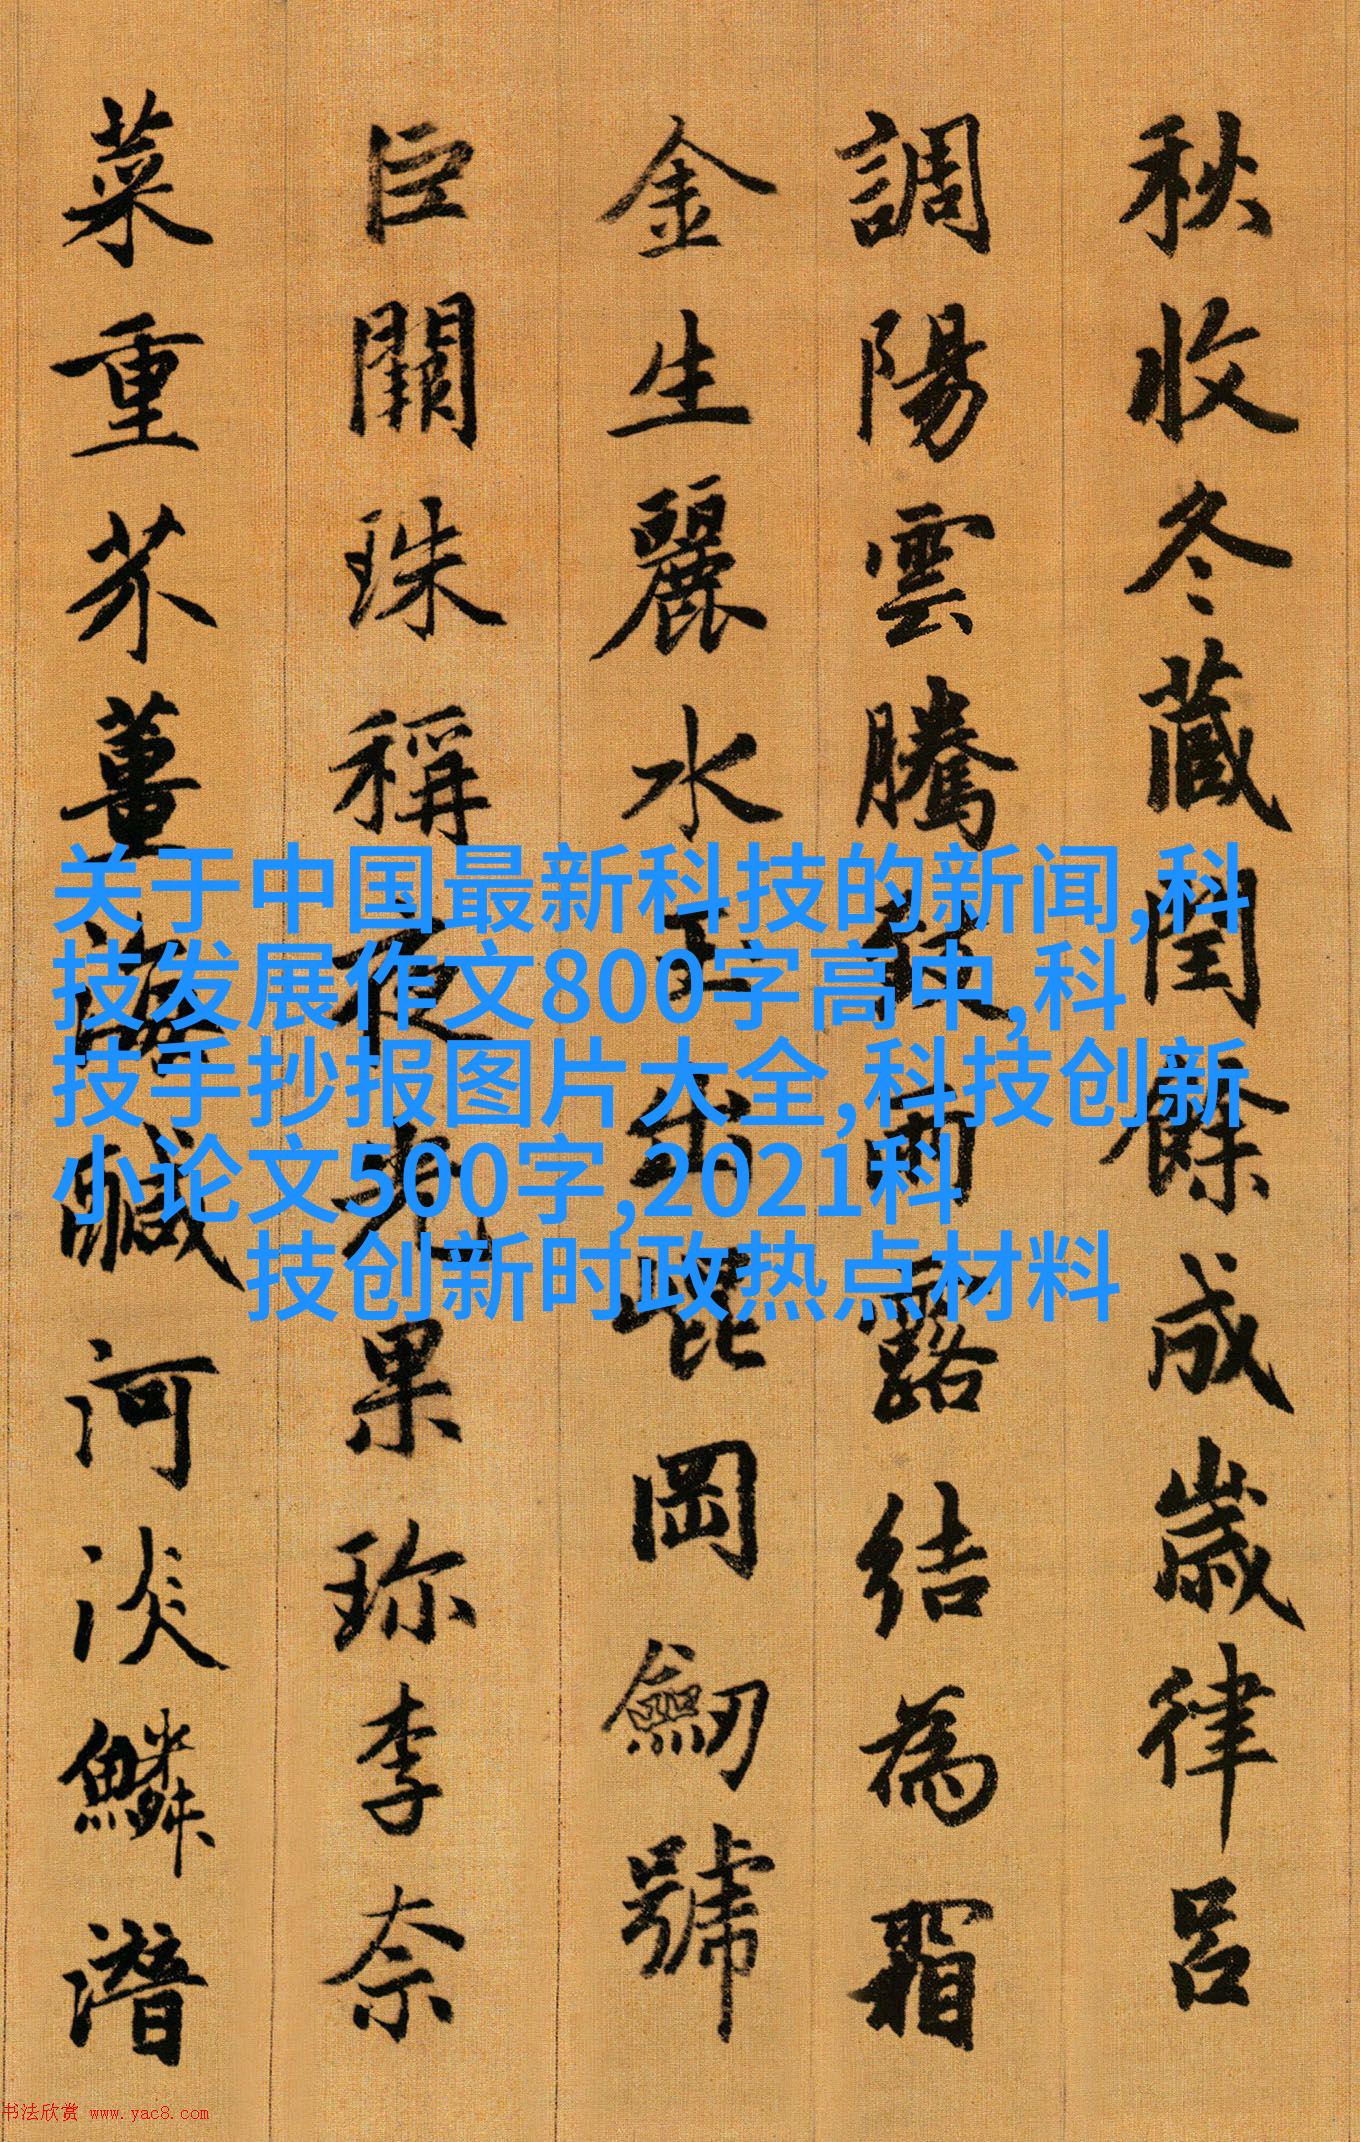 秋收冬藏閏餘成歲律呂
調陽雲騰致雨露結為霜
金生麗水玉出崐岡劔號
巨闕珠稱夜光果珍李奈
菜重芥薑海鹹河淡鱗潛
关于中国最新科技的新闻,科
技发展作文800字高中,科
技手抄报图片大全,科技创新
小论文500字,2021科
技创新时政热点材料
书法欣赏 www.yac8.com